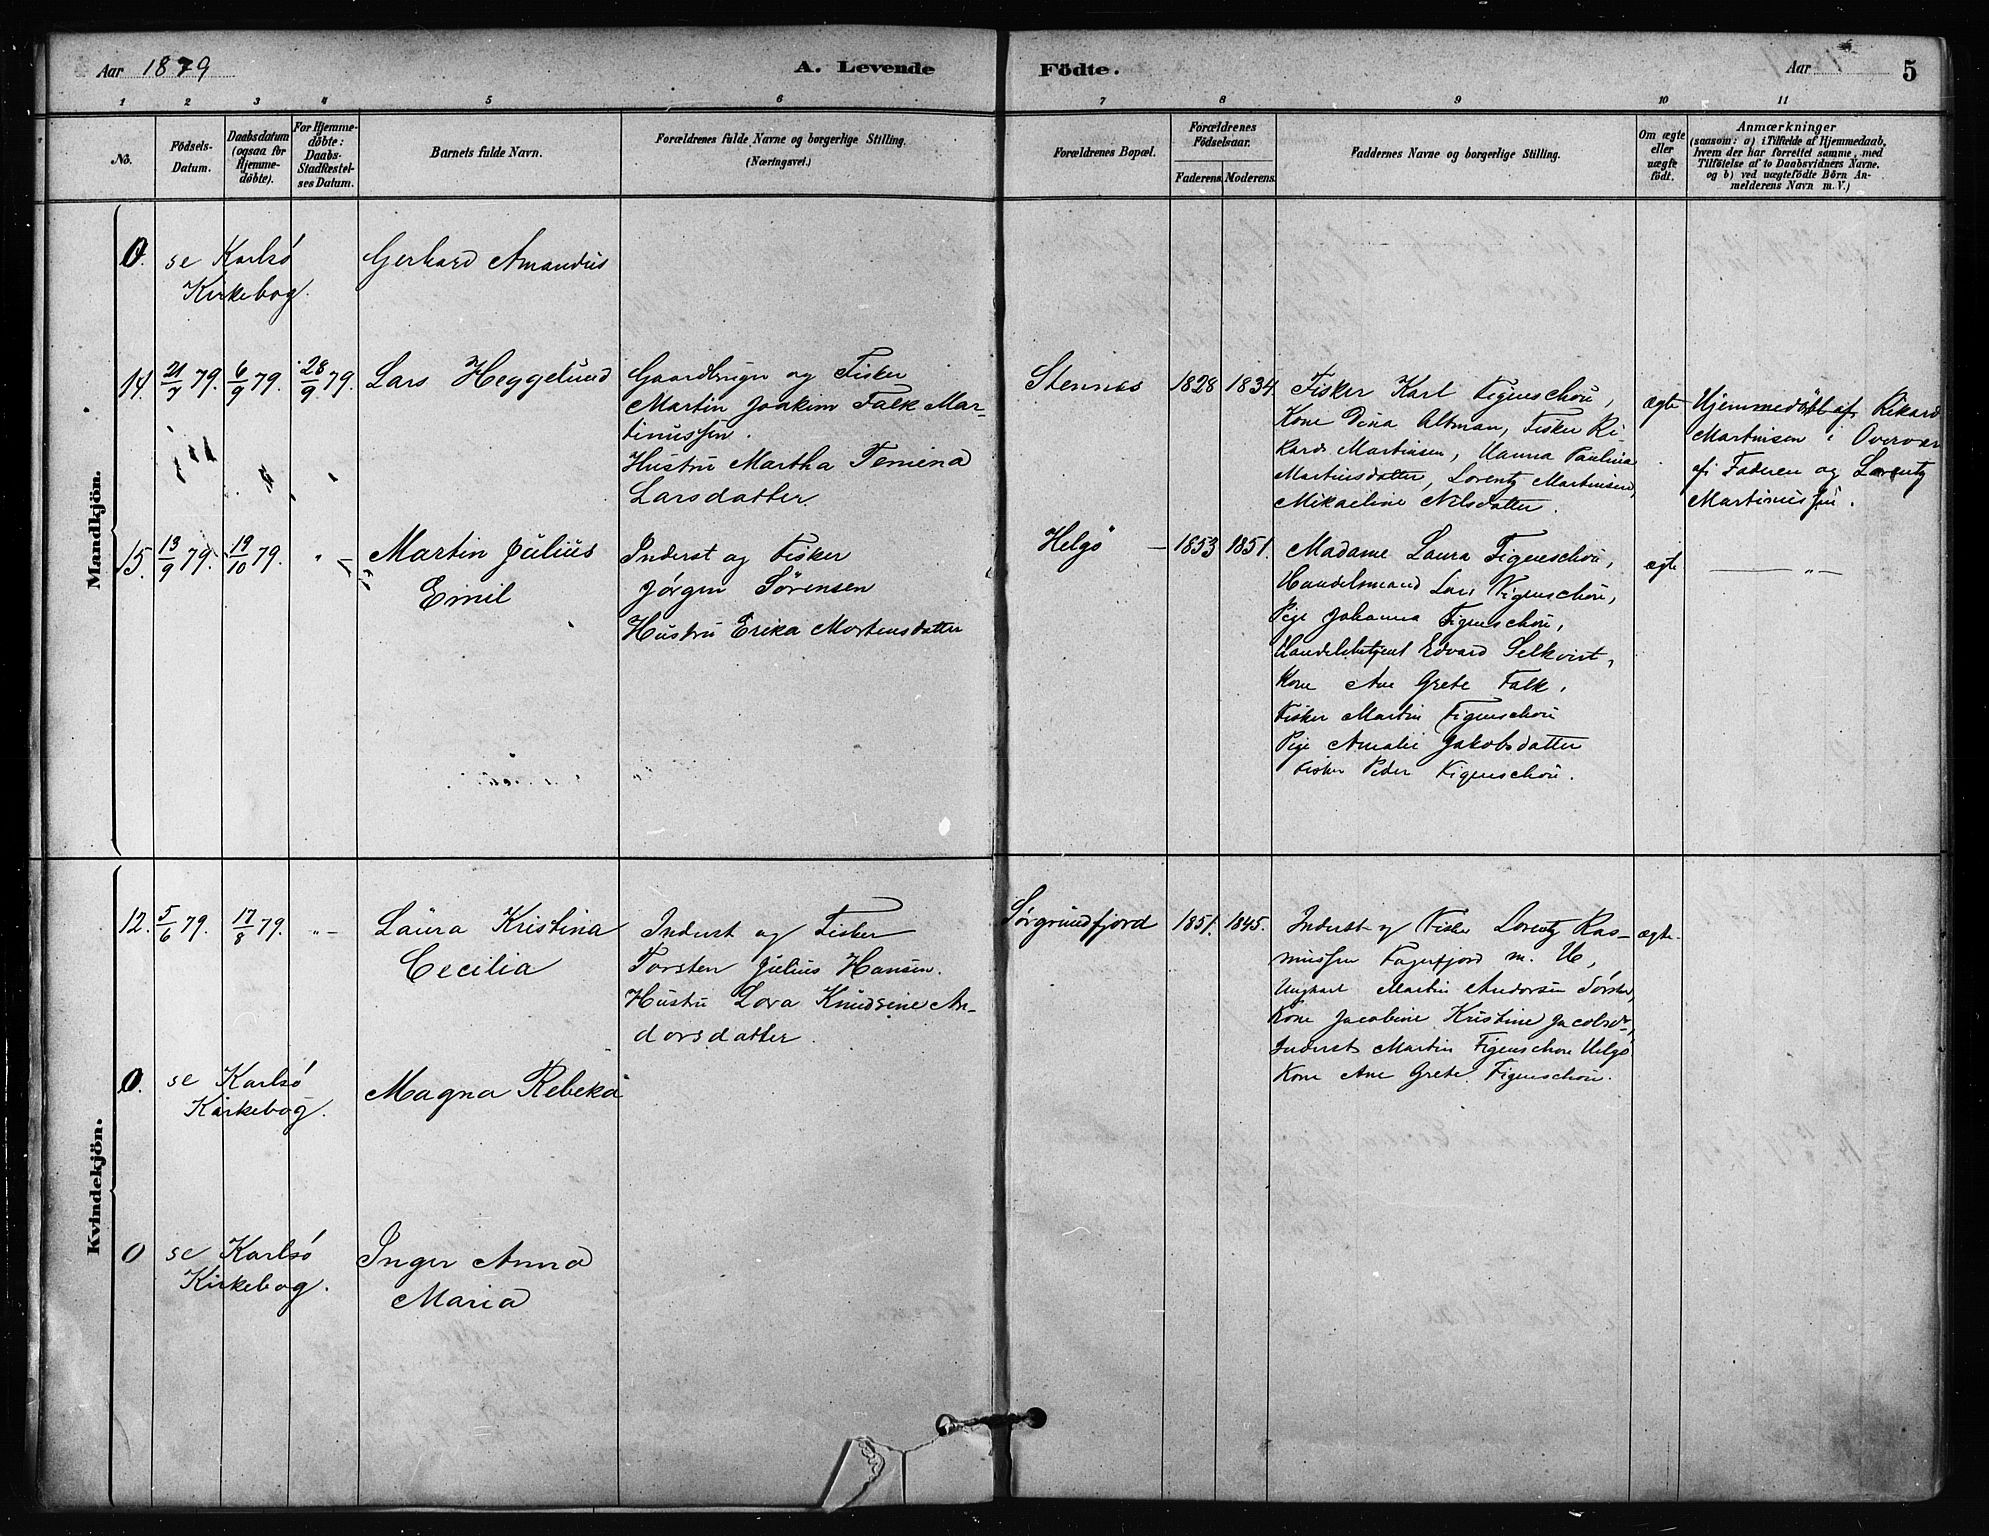 Aar 1879
A. Levende
Födte.
Aar
5
1 2 3 4 5 6 7 8 9 10 11
No.
Födsels-
Datum.
Daabsdatum
(ogsaa for
Hjemme-
døbte).
For Hjemme-
døbte:
Daabs-
Stadfæstel-
ses Datum.
Barnets fulde Navn.
Forældrenes fulde Navne og borgerlige Stilling.
(Næringsvei.)
Forældrenes Bopæl.
Forældrenes
Födselsaar.
Faderens.
Moderens.
Faddernes Navne og borgerlige Stilling.
Om ægte
eller
uægte
født.
Anmærkninger
(saasom: a) i Tilfælde af Hjemmedaab,
hvem der har forrettet samme, med
Tilföielse af to Daabsvidners Navne.
og b) ved uægtefödte Börn An-
melderens Navn m. V.)
Mandkjön.
0. se Karlsö
Kirkebog.
Gerhard Amandus
14. 21/7 79. 6/9 79. 28/9 79.
Lars Heggelund
Gaardbruger og Fisker
Martin Joakim Falk Mar-
tinussen.
Hustru Martha Temina
Larsdatter
Stennes
1828 1834.
Fisker Karl Figenschou,
Kone Dina Altman, Fisker Ri-
kard Martinsen, Hanna Paulina
Martinsdatter, Lorentz Martinsen,
Mikaeline Nilsdatter.
ægte
Hjemmedöbt af Rikard
Martinsen i Overvær
af Faderen og Lorentz
Martinussen.
15. 13/9 79. 19/10 79. " -
Martin Julius
Emil
Inderst og Fisker
Jørgen Sørensen
Hustru Erika Mortensdatter
Helgö -
1853 1851.
Madame Laura Figenschou,
Handelsmand Lars Figenschou,
Pige Johanna Figenschou,
Handelsbetjent Edvard Selkvist,
Kone Ane Grete Falk,
Fisker Martin Figenschou
Pige Amalie Jakobsdatter
Fisker Peder Figenschou.
ægte
— " —
Kvindekjön.
12. 5/6 79. 17/8 79. " -
Laura Kristina
Cecilia
Inderst og Fisker
Torsten Julius Hansen.
Hustru Lova Knudsine An-
dorsdatter.
Sørgrundfjord
1851. 1845.
Inderst og Fisker Lorentz Ras-
mussen Fagerfjord m. U,
Ungkarl Martin Andorsen
Kone Jacobine Kristine
Inderst Martin Figenschou Helgö
Kone Ane Grete Figenschou.
ægte
0. se Karlsö
Kirkebog.
Magna Rebeka
0 se Karlsö
Kirkebog.
Inger Anna
Maria